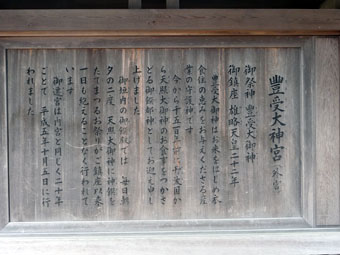 豊受大神宮（外宮）
御祭神 豊受大御神
御鎮座 雄略天皇二十二年
豊受大御神はお米をはじめ衣
食住の恵みをお与えくださる産
業の守護神です
今から千五百年前に丹波国か
ら天照大御神のお食事をつかさ
どる御饌都神としてお迎え申し
上げました
御垣内の御饌殿では毎日朝
夕の二度、天照大御神に神饌を
たてまつるお祭りがご鎮座以来
一日も絶えることなく行われて
います
御遷宮は内宮と同じく二十年
ごとで、平成五年十月五日に行
われました